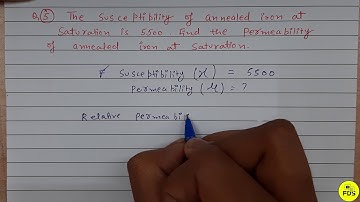 Q.(5) The Susceptibility of annealed iron at
Saturation is 5500 find the Permeability
of annealed iron at Saturation.
Susceptibility (χ) = 5500
Permeability (μ) = ?
Relative Permeabil
FDS